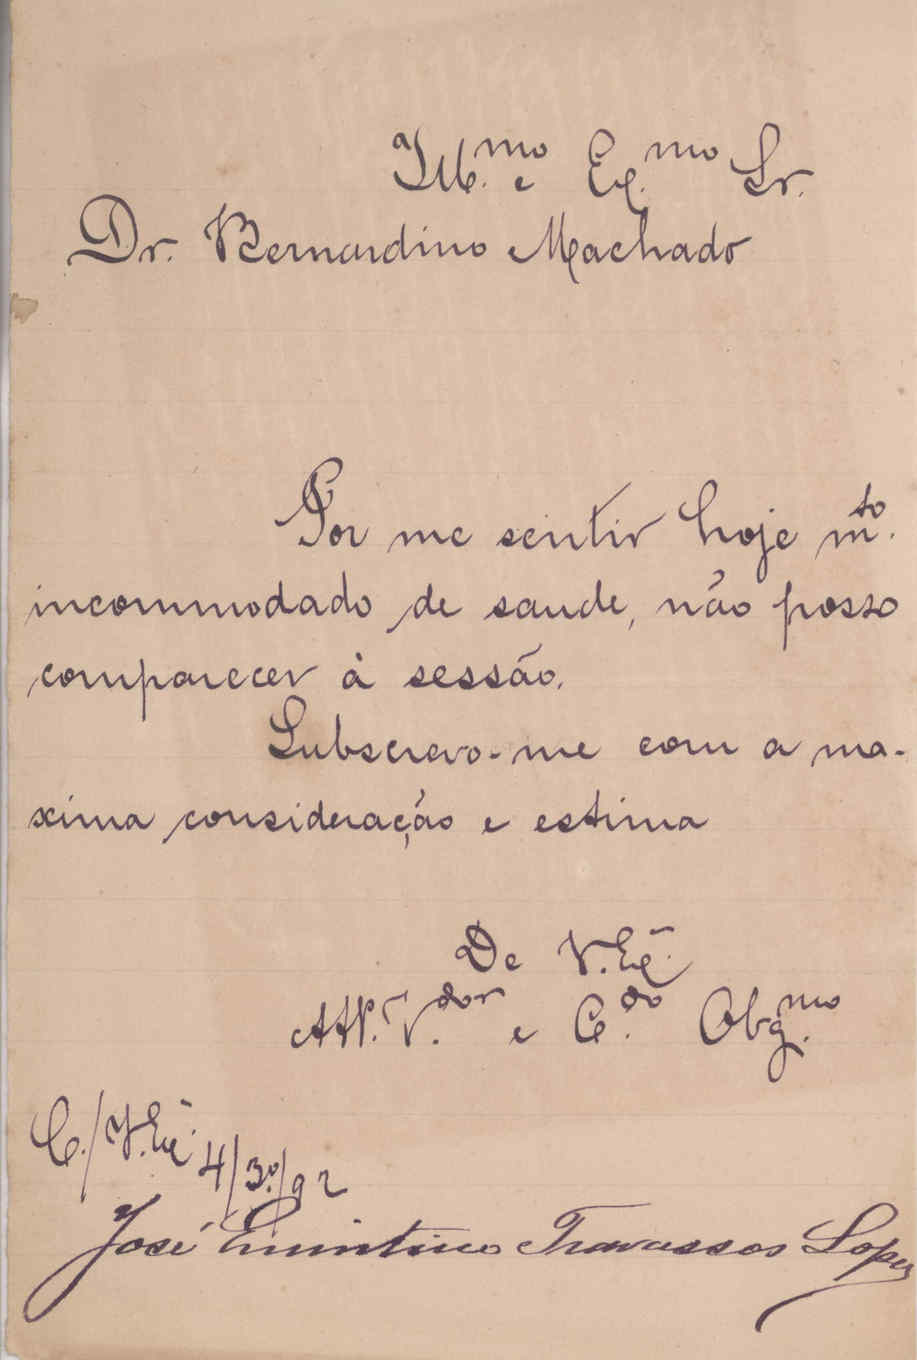 Ill.mo e Ex.mo Sr.
Dr. Bernardino Machado
Por me sentir hoje m.to
incommodado de saude, não posso
comparecer á sessão.
Subscrevo-me com a ma-
xima consideração e estima
De V. Ex.
Att. V.dor e C.do Obg.mo
C./V. Ex. 4/3º/92
José Quintino Travassos Lopes